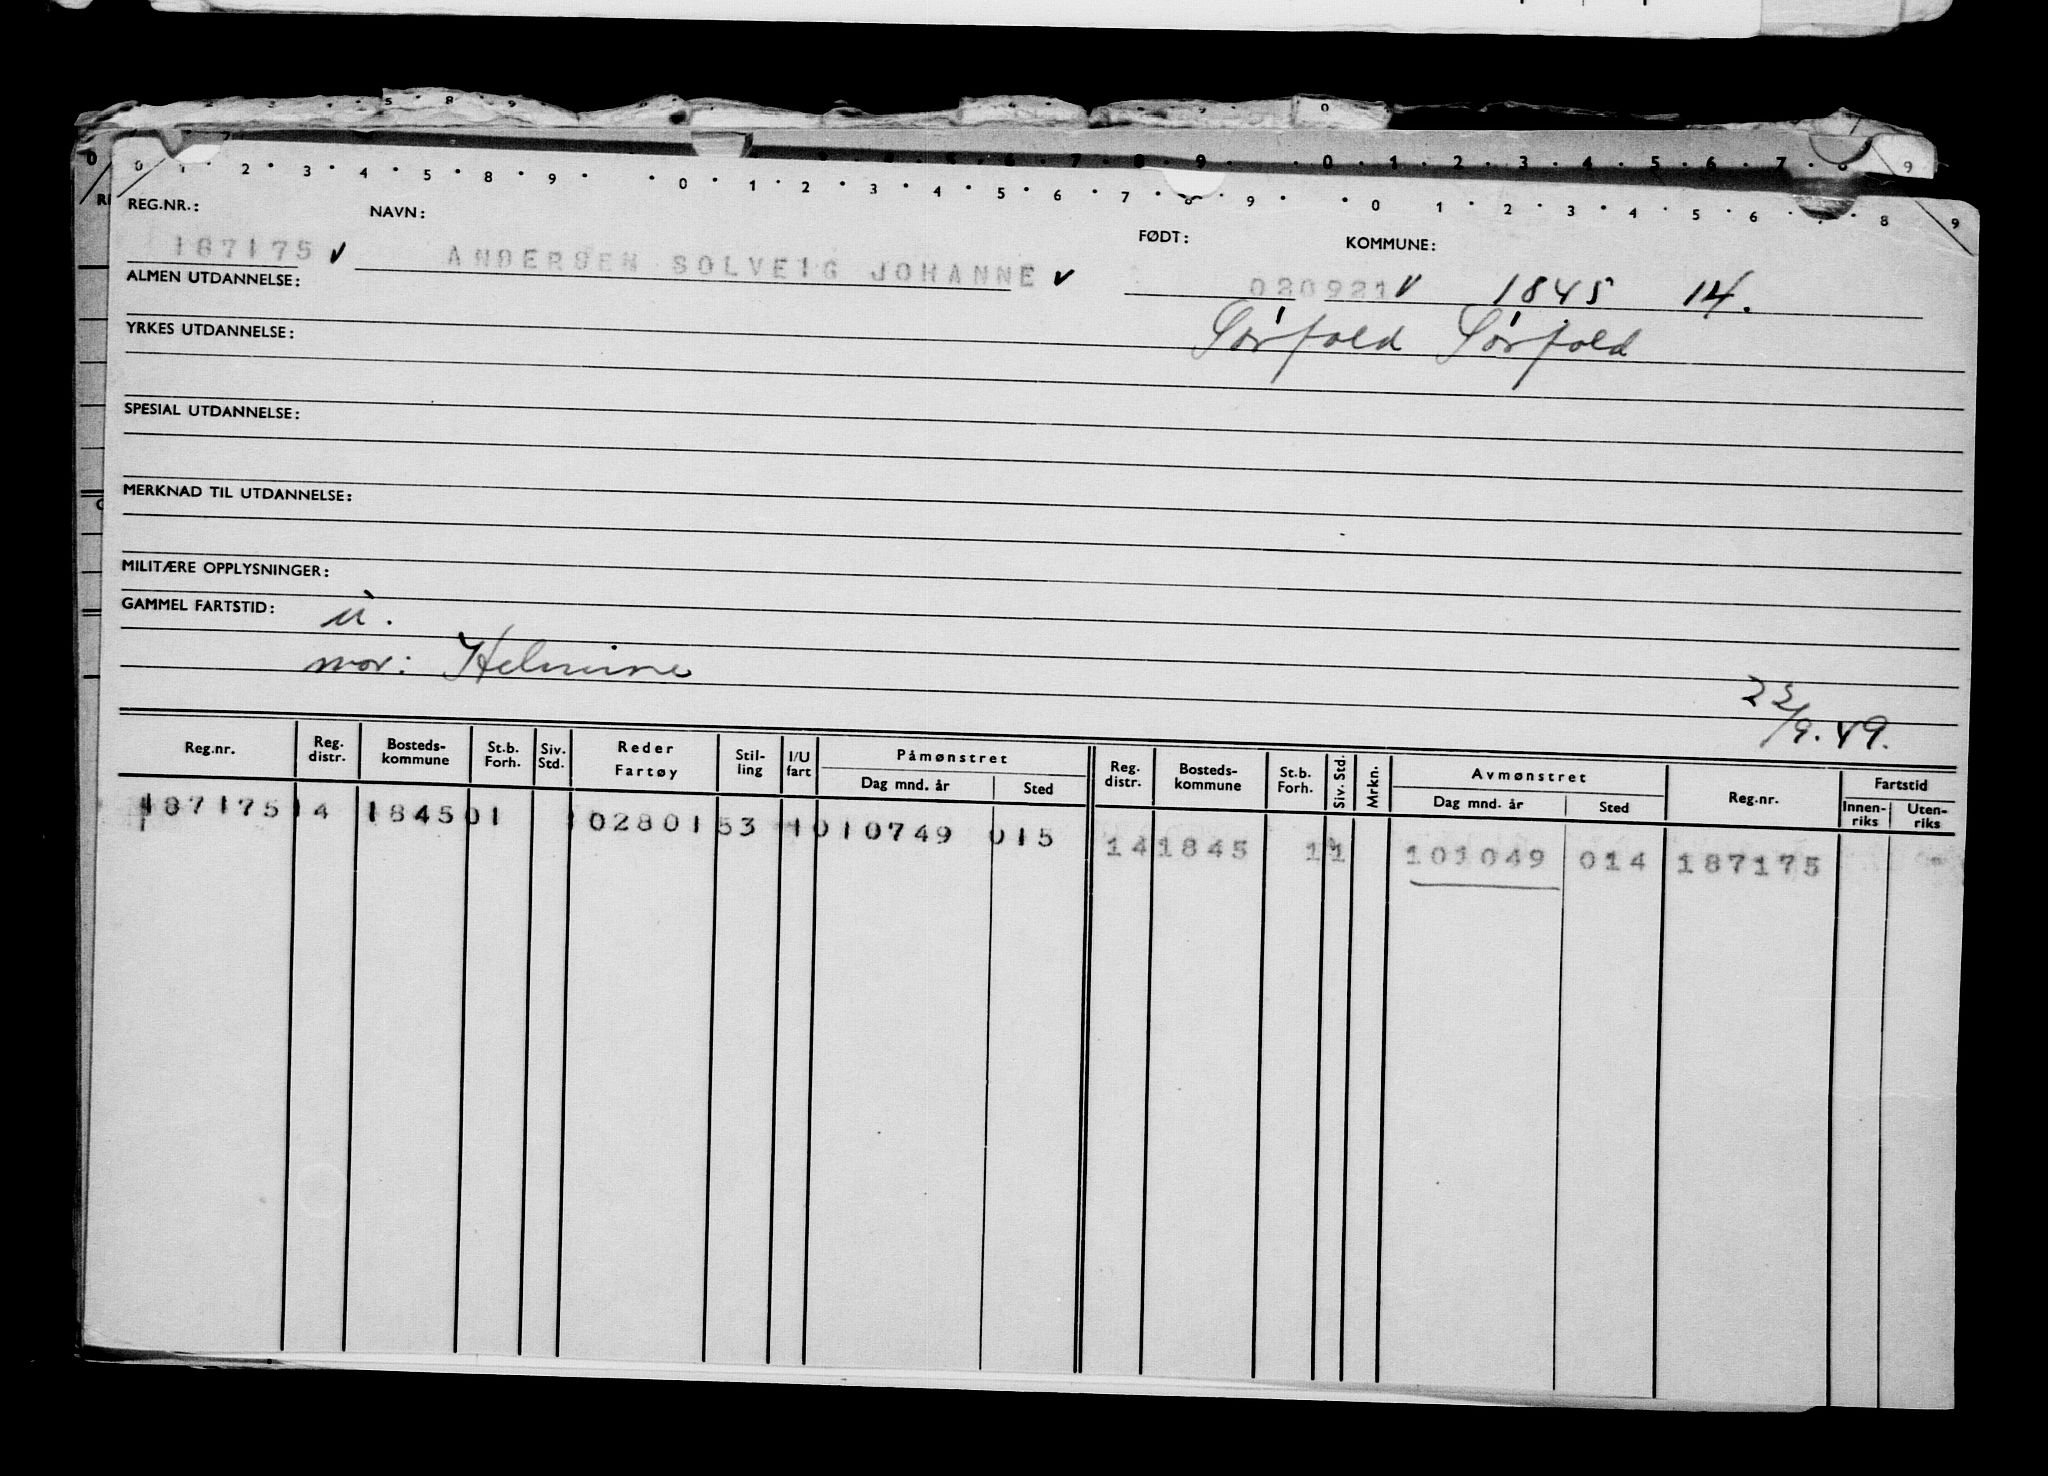 0 1 2 3 4 5 6 7 8 9
0 1 2 3 4 5 8 9 0 1 2 3 4 5 6 7 8 9 0 1 2 3 4 5 6 7 8 9
REG.NR.: NAVN: FØDT: KOMMUNE:
187175 v ANDERSEN SOLVEIG JOHANNE v 020921 v 1845 14.
ALMEN UTDANNELSE:
Sørfold Sørfold
YRKES UTDANNELSE:
SPESIAL UTDANNELSE:
MERKNAD TIL UTDANNELSE:
MILITÆRE OPPLYSNINGER:
GAMMEL FARTSTID: u.
mor: Helmine
22/9.49.
Reg.nr. Reg. distr. Bosteds- kommune St.b. Forh. Siv. Std. Reder Fartøy Stil- ling I/U fart Påmønstret Dag mnd. år Sted Reg. distr. Bosteds- kommune St.b. Forh. Siv. Std. Mrkn. Avmønstret Dag mnd. år Sted Reg.nr. Fartstid Innen- riks Uten- riks
187175 14 1845 01 102801 53 1 010749 015 14 1845 11 101049 014 187175